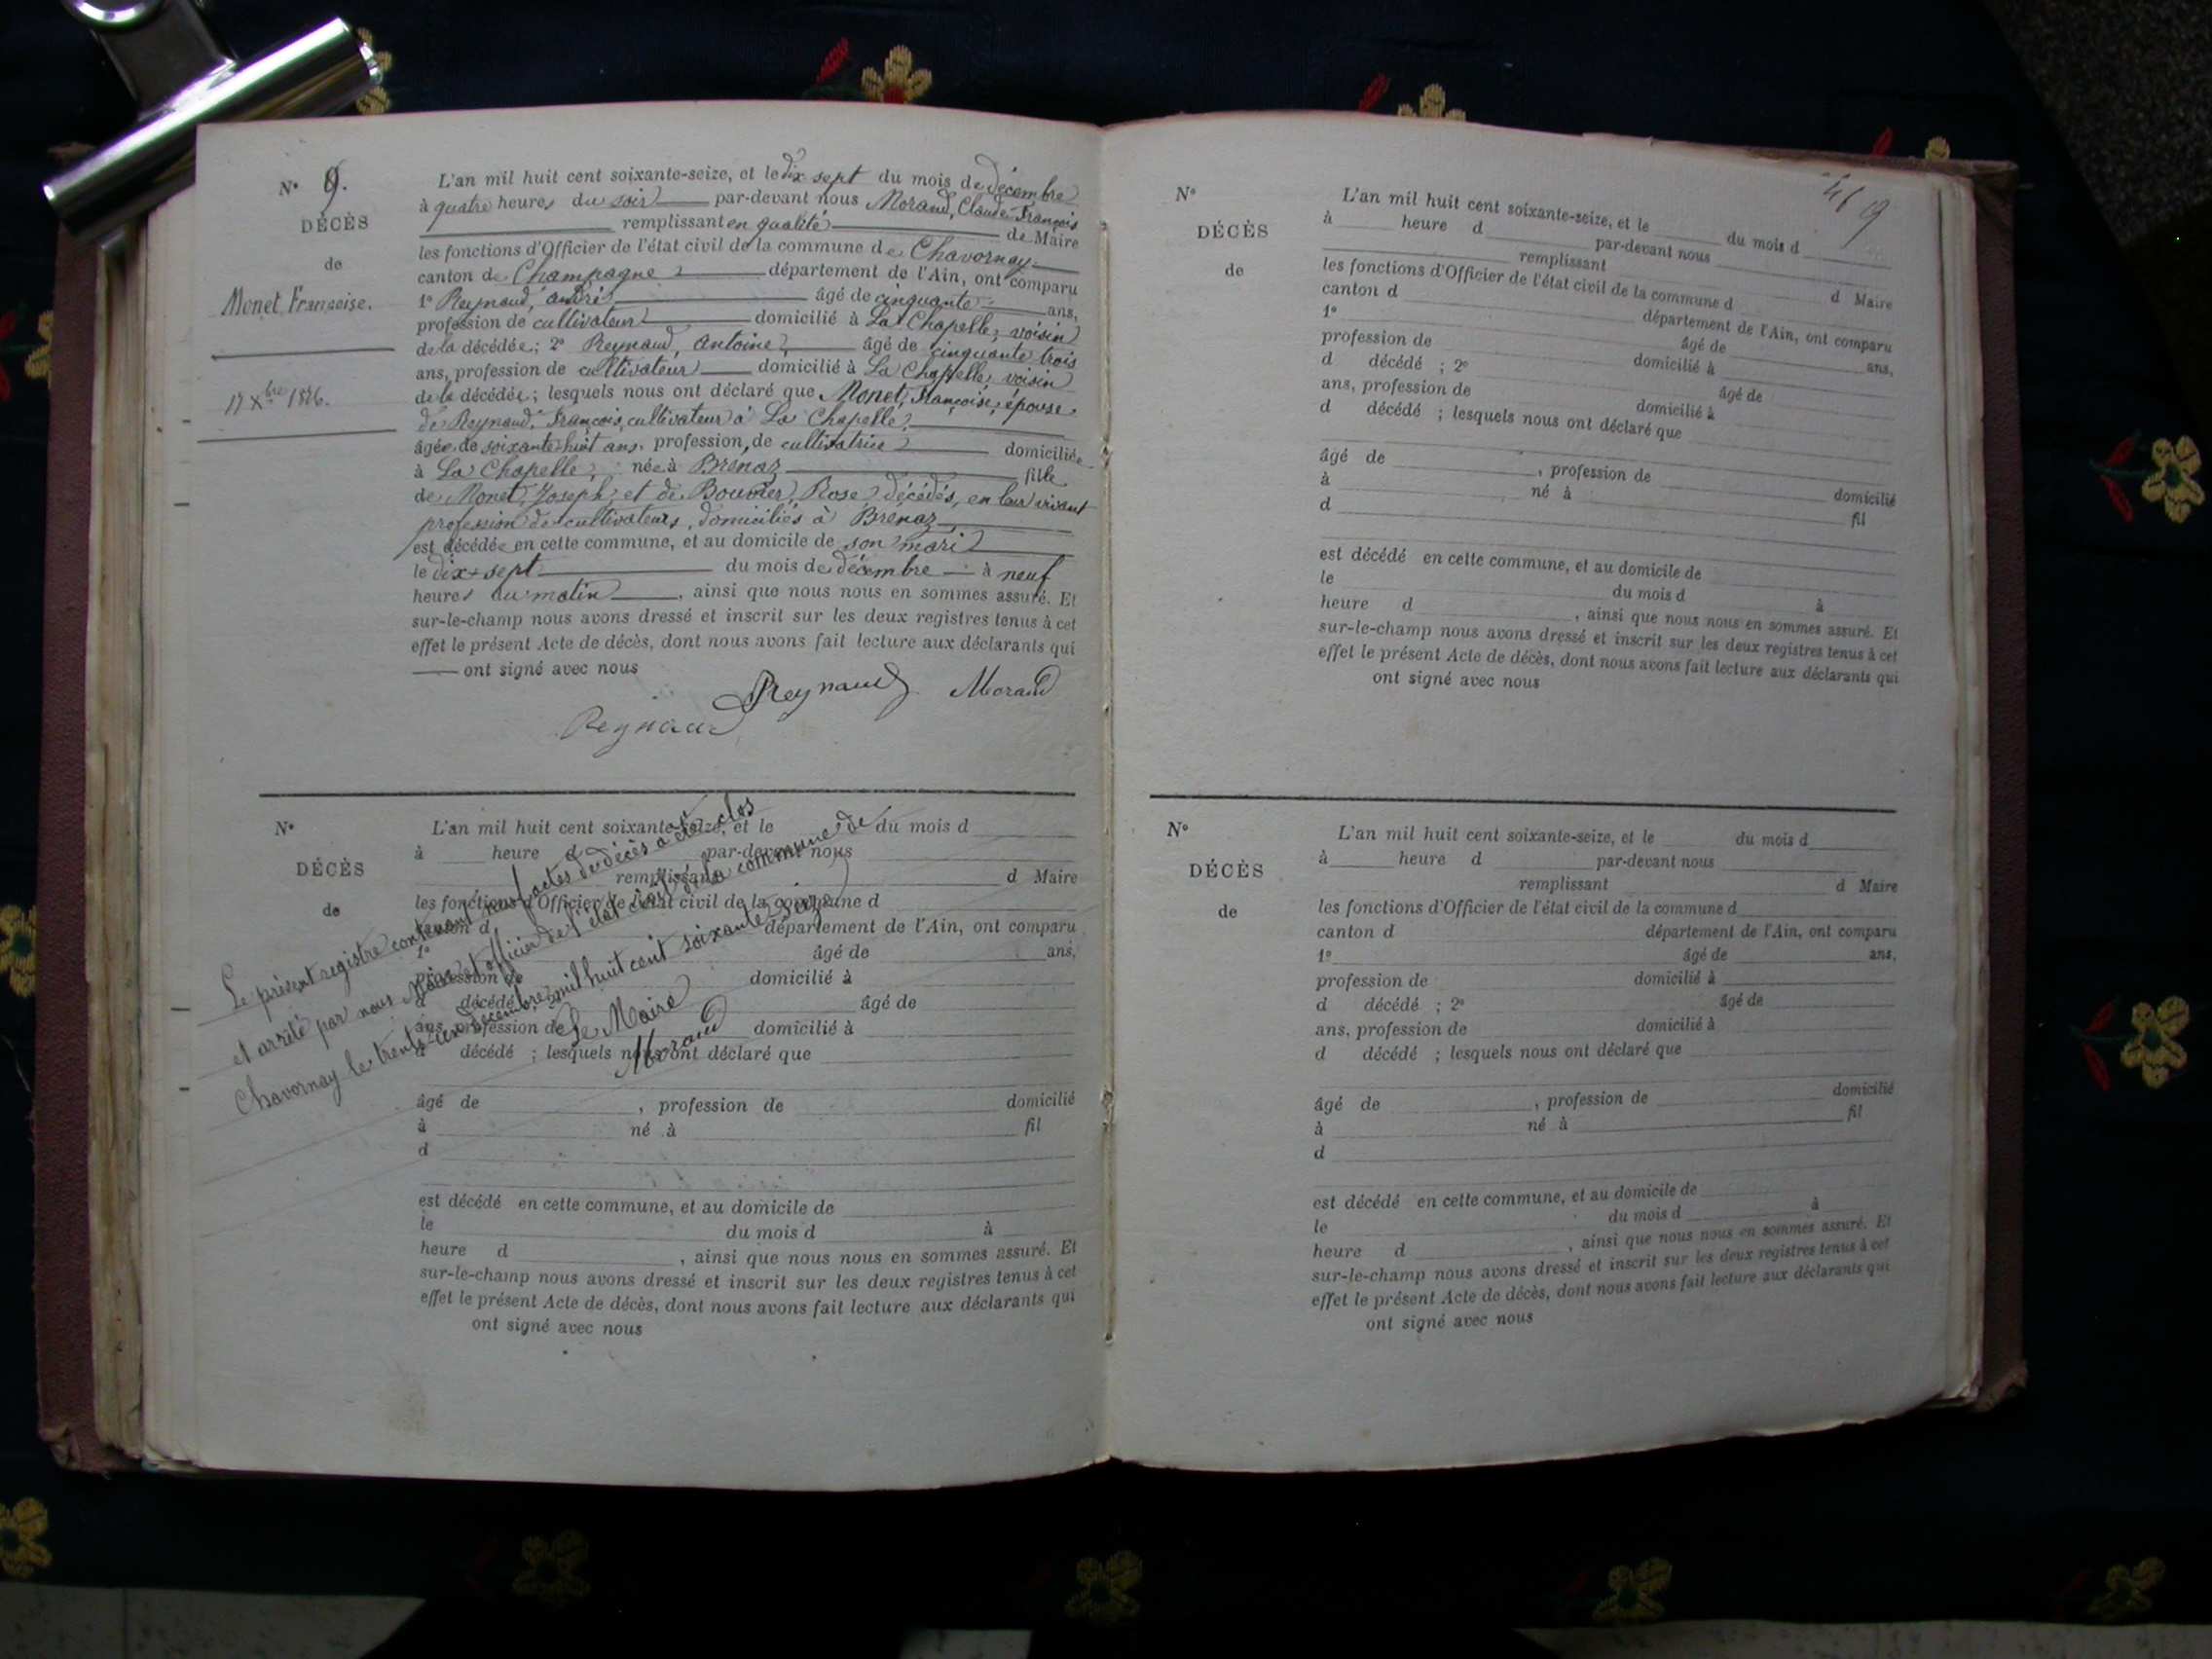 N° 9.
DÉCÈS
de
Monet Françoise.
17 Xbre 1876.
L'an mil huit cent soixante-seize, et le dix sept du mois de décembre
à quatre heures du soir par-devant nous Morand, Claude François
remplissant en qualité de Maire
les fonctions d'Officier de l'état civil de la commune de Chavornay
canton de Champagne département de l'Ain, ont comparu
1° Reynaud, andré âgé de cinquante ans,
profession de cultivateur domicilié à La Chapelle, voisin
de la décédée; 2° Reynaud, antoine, âgé de cinquante trois
ans, profession de cultivateur domicilié à La Chapelle, voisin
de la décédée; lesquels nous ont déclaré que Monet, Françoise, épouse
de Reynaud, François, cultivateur à La Chapelle,
âgée de soixante-huit ans, profession de cultivatrice domiciliée
à La Chapelle, née à Brénaz fille
de Monet, Joseph, et de Rose, décédés, en leur vivant
profession de cultivateurs, domiciliés à Brénaz
est décédée en cette commune, et au domicile de son mari
le dix-sept du mois de décembre à neuf
heures du matin, ainsi que nous nous en sommes assuré. Et
sur-le-champ nous avons dressé et inscrit sur les deux registres tenus à cet
effet le présent Acte de décès, dont nous avons fait lecture aux déclarants qui
ont signé avec nous
Reynaud Morand
Reynaud
N°
DÉCÈS
de
L'an mil huit cent soixante-seize, et le du mois d
à heure d par-devant nous
remplissant d Maire
les fonctions d'Officier de l'état civil de la commune d
canton d département de l'Ain, ont comparu
1° âgé de ans,
profession de domicilié à
d décédé ; 2° âgé de
ans, profession de domicilié à
d décédé ; lesquels nous ont déclaré que
âgé de , profession de domicilié
à né à fil
d
est décédé en cette commune, et au domicile de
le du mois d à
heure d , ainsi que nous nous en sommes assuré. Et
sur-le-champ nous avons dressé et inscrit sur les deux registres tenus à cet
effet le présent Acte de décès, dont nous avons fait lecture aux déclarants qui
ont signé avec nous
Le présent registre contenant neuf actes de décès a été clos
et arrêté par nous Maire et officier de l'état civil de la commune de
Chavornay le trente-un décembre mil huit cent soixante seize
Le Maire
Morand
N°
DÉCÈS
de
L'an mil huit cent soixante-seize, et le du mois d
à heure d par-devant nous
remplissant d Maire
les fonctions d'Officier de l'état civil de la commune d
canton d département de l'Ain, ont comparu
1° âgé de ans,
profession de domicilié à
d décédé ; 2° âgé de
ans, profession de domicilié à
d décédé ; lesquels nous ont déclaré que
âgé de , profession de domicilié
à né à fil
d
est décédé en cette commune, et au domicile de
le du mois d à
heure d , ainsi que nous nous en sommes assuré. Et
sur-le-champ nous avons dressé et inscrit sur les deux registres tenus à cet
effet le présent Acte de décès, dont nous avons fait lecture aux déclarants qui
ont signé avec nous
N°
DÉCÈS
de
L'an mil huit cent soixante-seize, et le du mois d
à heure d par-devant nous
remplissant d Maire
les fonctions d'Officier de l'état civil de la commune d
canton d département de l'Ain, ont comparu
1° âgé de ans,
profession de domicilié à
d décédé ; 2° âgé de
ans, profession de domicilié à
d décédé ; lesquels nous ont déclaré que
âgé de , profession de domicilié
à né à fil
d
est décédé en cette commune, et au domicile de
le du mois d à
heure d , ainsi que nous nous en sommes assuré. Et
sur-le-champ nous avons dressé et inscrit sur les deux registres tenus à cet
effet le présent Acte de décès, dont nous avons fait lecture aux déclarants qui
ont signé avec nous